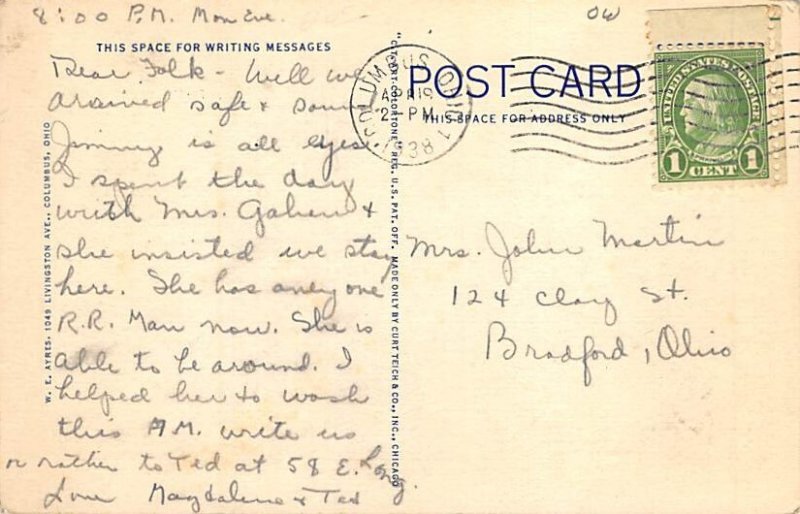 8:00 P.M. Mon Eve.
THIS SPACE FOR WRITING MESSAGES
Dear Folk - Well we
arained safe & soun
Jimmy is all eyes
I spent the day
with Mrs. Gahen &
she insisted we stay
here. She has only one
R.R. Man now. She is
able to be around. I
helped her to wash
this A.M. write us
or rather to Ted at 58 E. Long
Love Magdalene & Ted
W. E. AYRES, 1049 LIVINGSTON AVE., COLUMBUS, OHIO
"C.T. ART-COLORTONE" REG. U.S. PAT. OFF. MADE ONLY BY CURT TEICH & CO., INC., CHICAGO
OW
POST CARD
THIS SPACE FOR ADDRESS ONLY
COLUMBUS, OHIO 1
1938
UNITED STATES POSTAGE
1 CENT 1
Mrs. John Martin
124 Clay St.
Bradford, Ohio